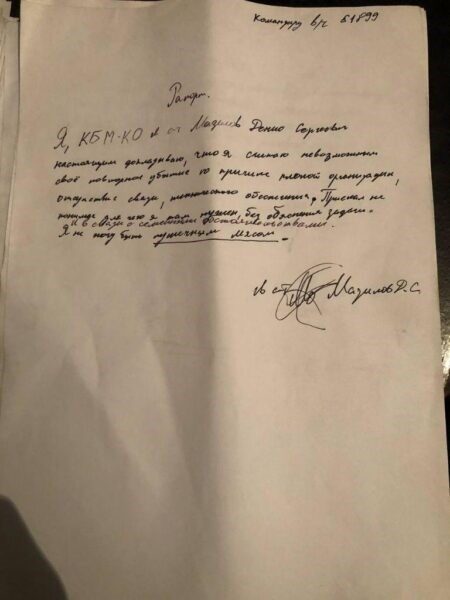 Командиру в/ч 51899
Рапорт.
Я, КБМ-КО Мазилов Денис Сергеевич
настоящим докладываю, что я считаю невозможным
своё повторное убытие по причине плохой организации,
отсутствие связи, технического обеспечения. Приказ не
для чего я там нужен, без объяснения задачи.
и в связи с семейными обстоятельствами.
Я не могу быть пушечным мясом.
гв ст Мазилов Д.С.